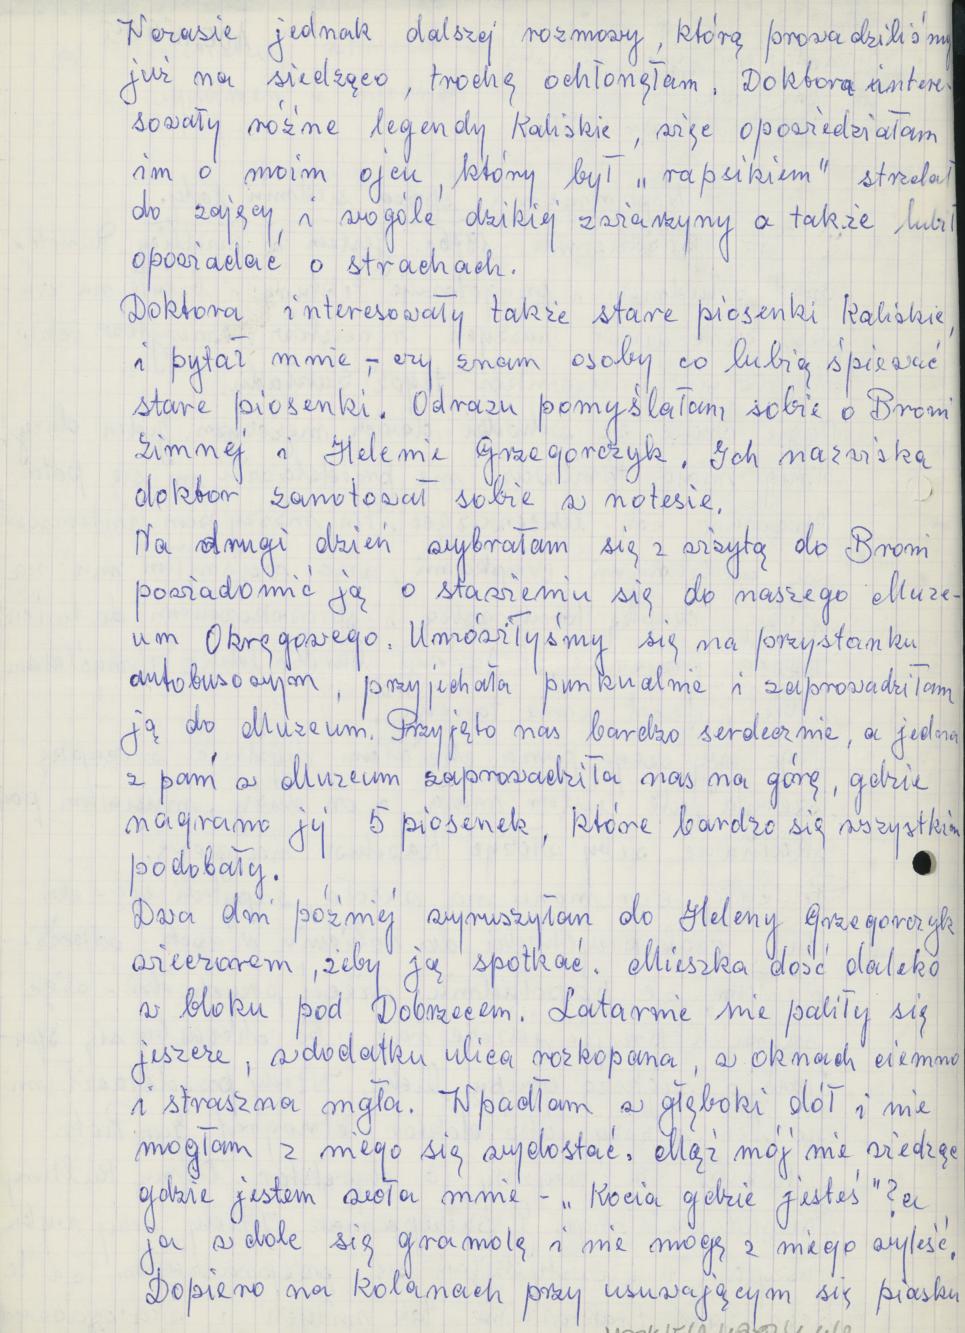 Wczasie jednak dalszej rozmowy, którą prowadziliśmy
już na siedząco, trochę ochłonęłam. Doktora intere-
sowały różne legendy Kaliskie, więc opowiedziałam
im o moim ojcu, który był „rapsikiem" strzelał
do zajęcy, i wogóle dzikiej zwierzyny a także lubił
opowiadać o strachach.
Doktora interesowały także stare piosenki Kaliskie,
i pytał mnie, – czy znam osoby co lubią śpiewać
stare piosenki. Odrazu pomyślałam sobie o Broni
Zimnej i Helenie Grzegorczyk. Ich nazwiska
doktor zanotował sobie w notesie.
Na drugi dzień wybrałam się z wizytą do Broni
powiadomić ją o stawieniu się do naszego Muze-
um Okręgowego. Umówiłyśmy się na przystanku
autobusowym, przyjechała punkualnie i zaprowadziłam
ją do Muzeum. Przyjęto nas bardzo serdecznie, a jedna
z pań w Muzeum zaprowadziła nas na górę, gdzie
nagrano jej 5 piosenek, które bardzo się wszystkim
podobały.
Dwa dni później wyruszyłam do Heleny Grzegorczyk
wieczorem, żeby ją spotkać. Mieszka dość daleko
w bloku pod Dobrzecem. Latarnie nie paliły się
jeszcze, wdodatku ulica rozkopana, w oknach ciemno
i straszna mgła. Wpadłam w głęboki dół i nie
mogłam z niego się wydostać. Mąż mój nie wiedząc
gdzie jestem woła mnie – „Kocia gdzie jesteś"? a
ja w dole się gramolę i nie mogę z niego wyleść.
Dopiero na kolanach przy usuwającym się piasku